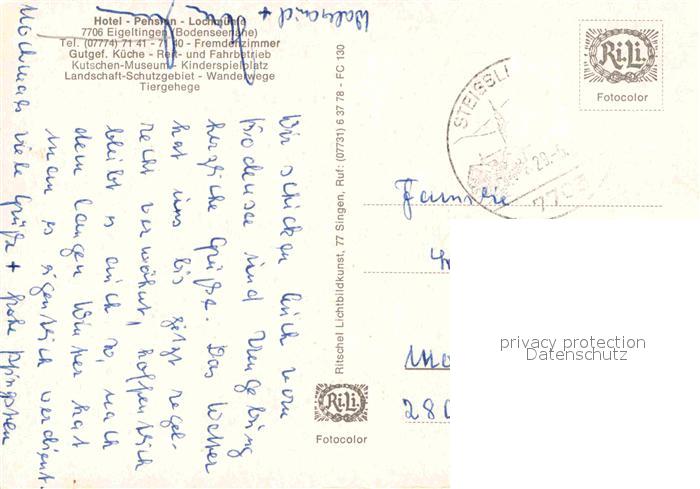 Hotel - Pension - Lochmühle
7706 Eigeltingen (Bodenseenähe)
Tel. (07774) 71 41 - Fremdenzimmer
Gutgef. Küche - Reit- und Fahrbetrieb
Kutschen-Museum - Kinderspielplatz
Landschaft-Schutzgebiet - Wanderwege
Tiergehege
Wir schicken Euch vom
Bodensee und Umgebung
herzliche Grüße. Das Wetter
hat uns bis jetzt regel-
recht verwöhnt, hoffentlich
bleibt es auch so, nach
dem langen Winter hat
man es eigentlich verdient.
Nochmals viele Grüße + frohe Pfingsten
Ritschel Lichtbildkunst, 77 Singen, Ruf: (07731) 6 37 78 - FC 130
Ri.Li.
Fotocolor
Ri.Li.
Fotocolor
STEISSLI
7703
Familie
280
privacy protection
Datenschutz